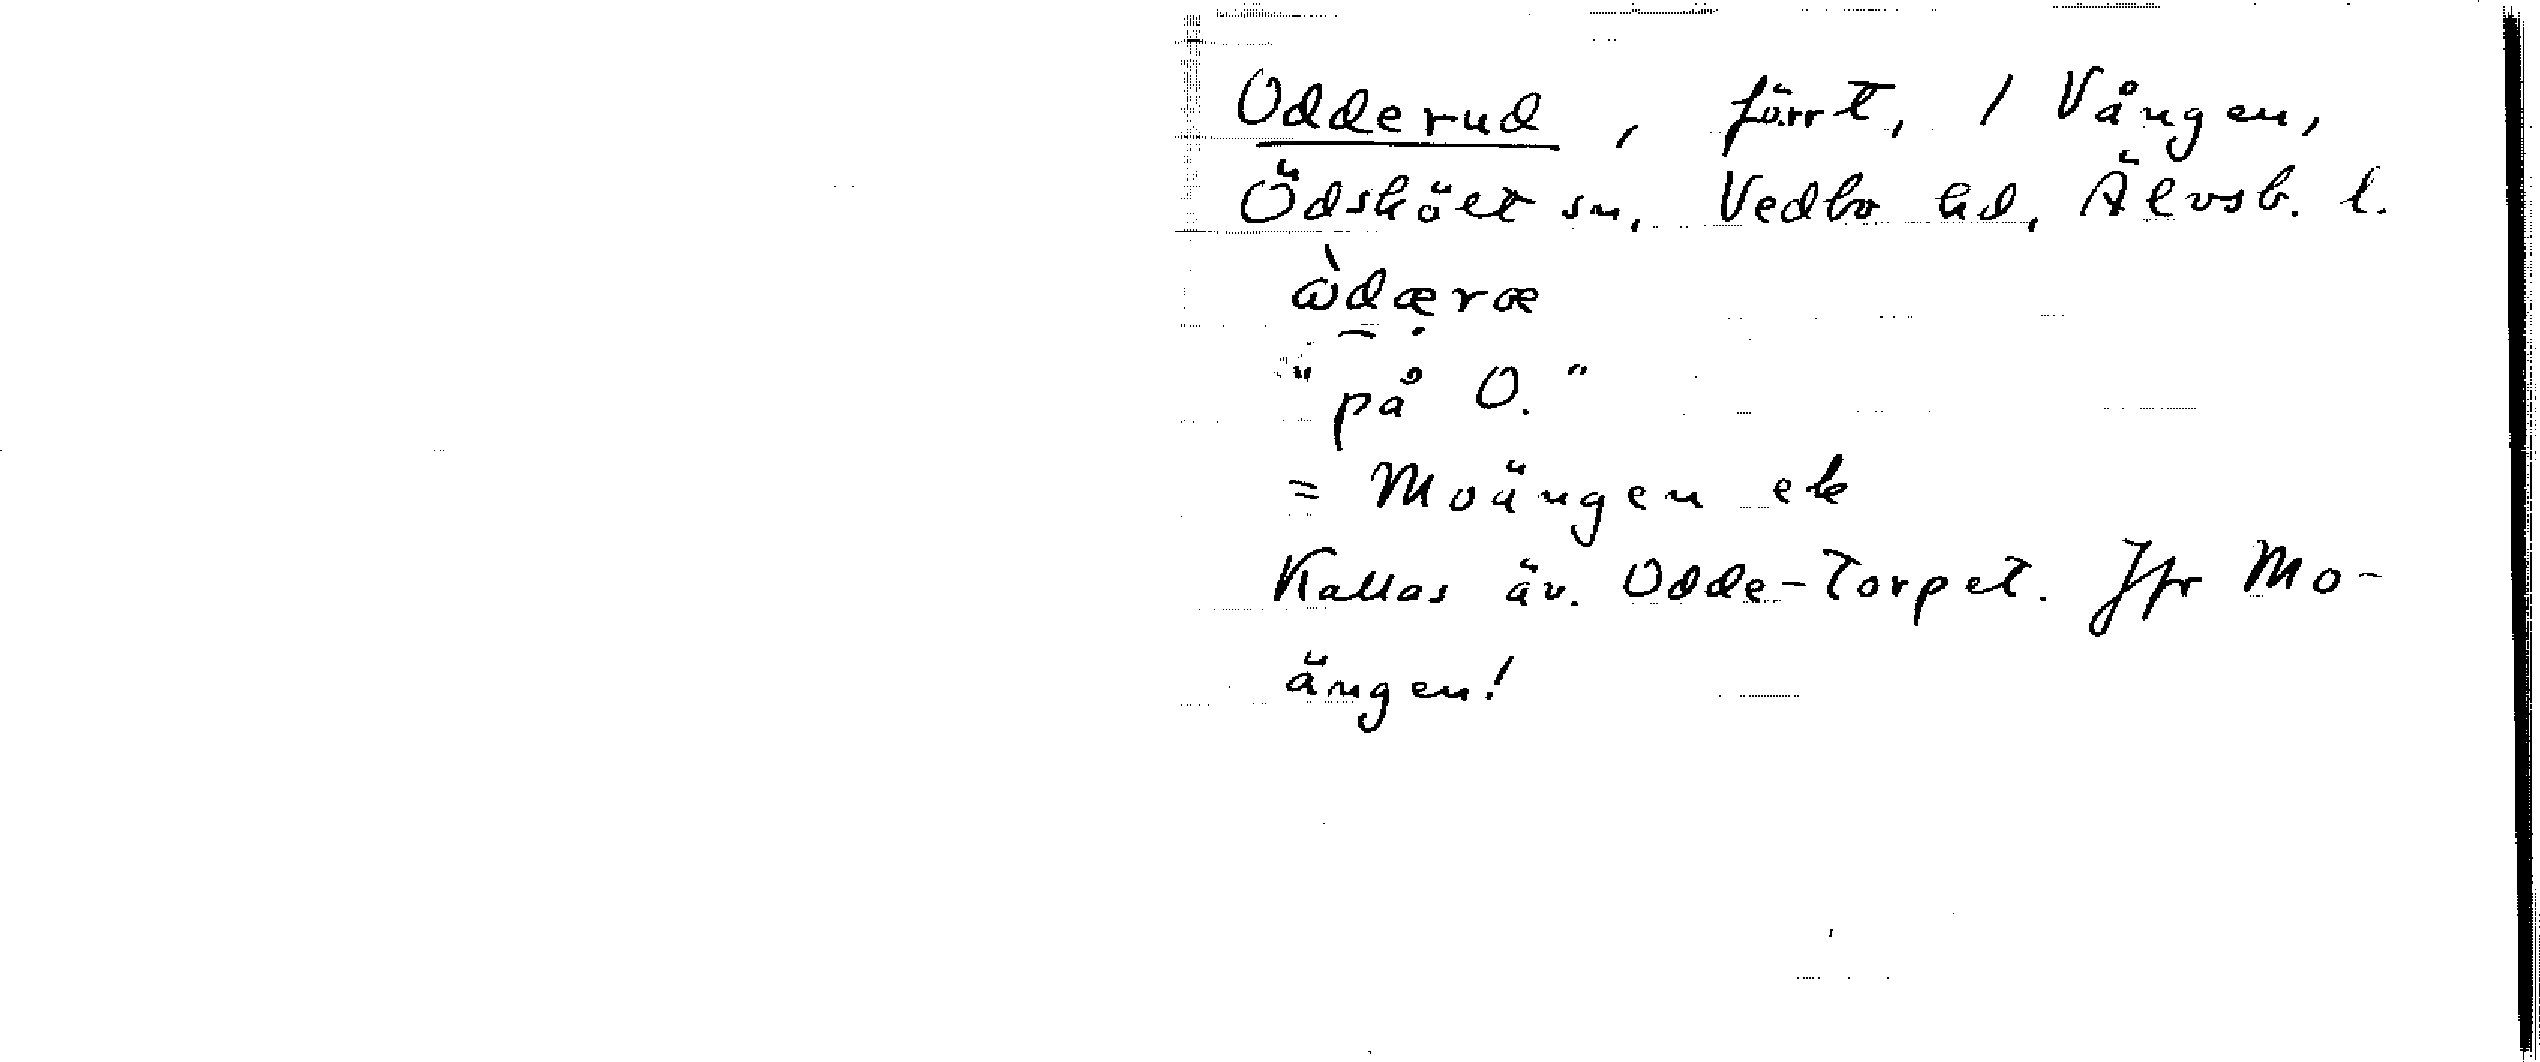 Odderud, förr t. 1 Vången,
Ödsköլt sn, Vedbo hd, Älvsb. l.
ὼdæræ
"på O."
= Moängen ek
Kallas äv. Odde-Torpet. Jfr Mo-
ängen!